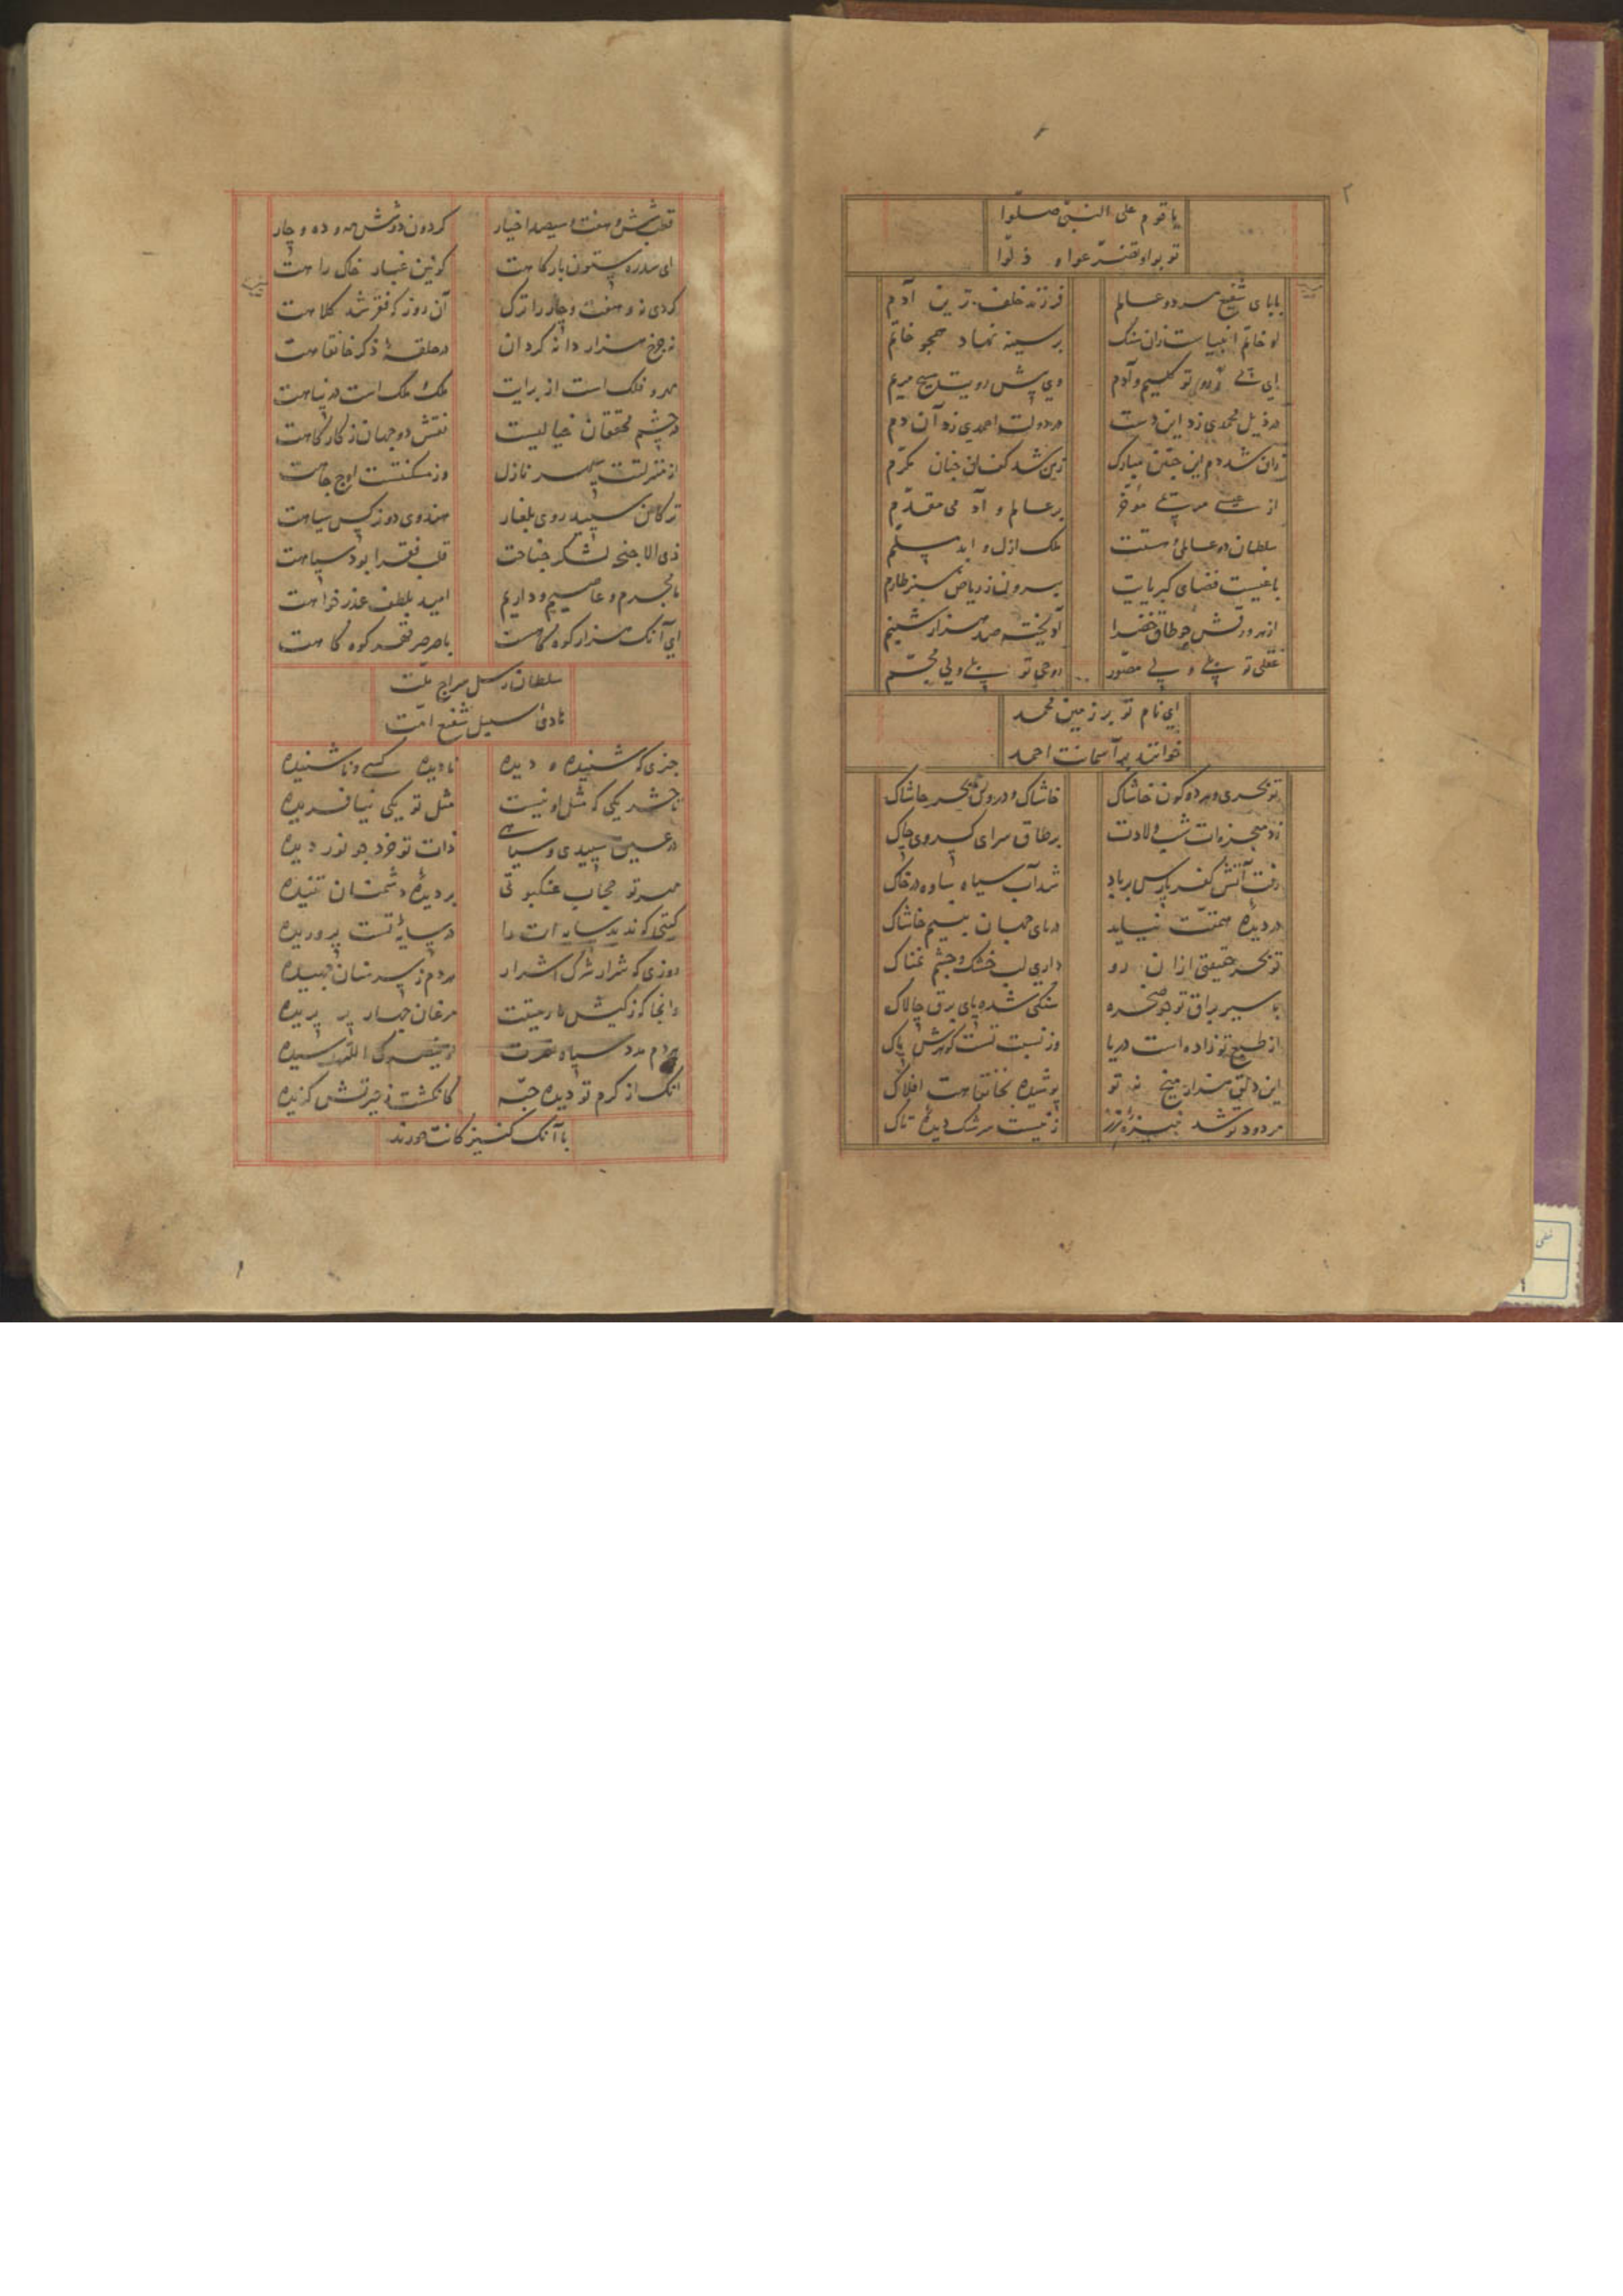 یا قوم علی النبی صلّوا
توبوا و تضرّعوا و ذلّوا
بابای شفیع هر دو عالم فرزند خلف‌ترین آدم
او خاتم انبیاست زان سنگ بر سینه نهاد همچو خاتم
ای پی رو تو کلیم و آدم وی پیش رویت مسیح مریم
در ذیل محمدی زد این دست در دولت احمدی زد آن دم
زان شد دم این چنین مبارک زین شد کف آن چنان مکرّم
از عیسی مرتبتی مؤخر بر عالم و آدمی مقدّم
سلطان دو عالمی و هستت ملک ازل و ابد مسلّم
باغیست فضای کبریایت بیرون ز ریاض سبز طارم
از هر ورقش چو طاق خضرا آویخته صد هزار شبنم
عقلی تو بلی ولی مصوّر روحی تو بلی ولی مجسّم
ای نام تو بر زمین محمد
خوانند بر آسمانت احمد
تو بحری و هر دو کون خاشاک خاشاک و درون بحر حاشاک
زد معجزه‌ات شب ولادت بر طاق سرای کسروی چاک
رفت آتش کفر پارس بر باد شد آب سیاه ساوه در خاک
در دیدهٔ همتت نیاید دریای جهان بنیم خاشاک
تو بحر حقیقتی ازان رو داری لب خشک و چشم نمناک
با سیر براق تو چو صخره سنگی شده پای برق چالاک
از طبع تو زاده است دریا وز نسبت تست گوهرش پاک
این دلق هزار میخ نه تو پوشیده بخانقاهت افلاک
مردود تو شد نبیره رز زینست سرشک دیدهٔ تاک
قلب شش و هفت و سیصد اخیار گردون دو شش مه و ده و چار
ای سدره ستون بارگاهت کونین غبار خاک راهت
کردی نه و هفت و چار را ترک آن روز که فقر شد کلاهت
نه چرخ هزار دانه گردان در حلقهٔ ذکر خانقاهت
مهر و فلک است از برایت ملک و ملک است در پناهت
در چشم محققان خیالیست نقش دو جهان ز کارگاهت
از منزلتت سپهر نازل وز مسکنتست اوج جاهت
ترکان سپید روی بلغار هندوی دو نرگس سیاهت
ذی الاجنحه لشکر جناحت قلب فقرا بود سپاهت
ما مجرم و عاصییم و داریم امید بلطف عذر خواهت
ای آنک هزار کوه کاهت با صرصر قهر کوه کاهت
سلطان رسل سراج ملّت
هادی سبل شفیع امّت
چیزی که شنیده و دیده نادیده کسی و ناشنیده
تا حشر یکی که مثل او نیست مثل تو یکی نیافریده
در عین سپیدی و سیاهی ذات تو خرد چو نور دیده
مهر تو حجاب عنکبوتی بر دیدهٔ دشمنان تنیده
گیتی که ندید سایه‌ات را در سایهٔ تست پروریده
روزی که شرار شرک اشرار هر دم ز سر سنان جهیده
وانجا که ز کیش مارمیتت مرغان چهار پر پریده
هر دم مدد سپاه نصرت از ینصرک الله رسیده
آنک از کرم تو دیده حبّه کانگشت ز حیرتش گزیده
با آنک کنیزکانت حورند